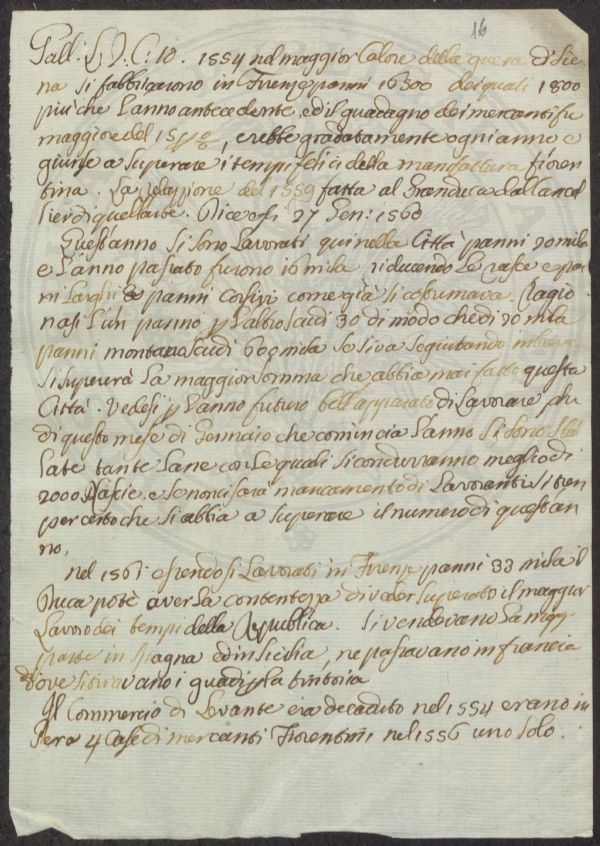 16
Gall. L. V. C. 10. 1554 nel maggior calore della guerra di Sie-
na si fabbricarono in Firenze panni 16300 dei quali 1800
più che l'anno antecedente, ed il guadagno dei mercanti fu
maggiore del 15 p%, crebbe gradatamente ogni anno e
giunse a superare i tempi felici della manifattura fioren
tina. La relazione del 1559 fatta al Granduca dal Cancel
lier di quell'arte. Dice così 27 Gen: 1560
Quest'anno si sono lavorati qui nella Città panni 20 mila
e l'anno passato furono 16 mila riducendo le rascie e pan
ni larghi e panni corsivi come già si costumava. Ragio
nasi l'un panno p l'altro scudi 30 di modo che di 20 mila
panni montano scudi 600 mila se si va seguitando
si supererà la maggior somma che abbia mai fatto questa
Città. Vedesi p l'anno futuro bell'apparato di lavorare
di questo mese di Gennaio che comincia l'anno si sono
late tante lane con le quali si condurranno meglio di
2000 Rascie. e se non ci sarà mancamento di lavoranti si tien
per certo che si abbia a superare il numero di quest'an
no.
nel 1561 essendosi lavorati in Firenze panni 33 mila il
Duca potè aver la contentezza di veder superato il maggior
lavoro dei tempi della Repubblica. Si vendevano la magg.
parte in Spagna ed in Sicilia, ne passavano in francia
dove si tiravano i guadi p la tintoria
Il Commercio di Levante era decaduto nel 1554 erano in
Pera 4 Case di mercanti Fiorentini nel 1556 uno solo.